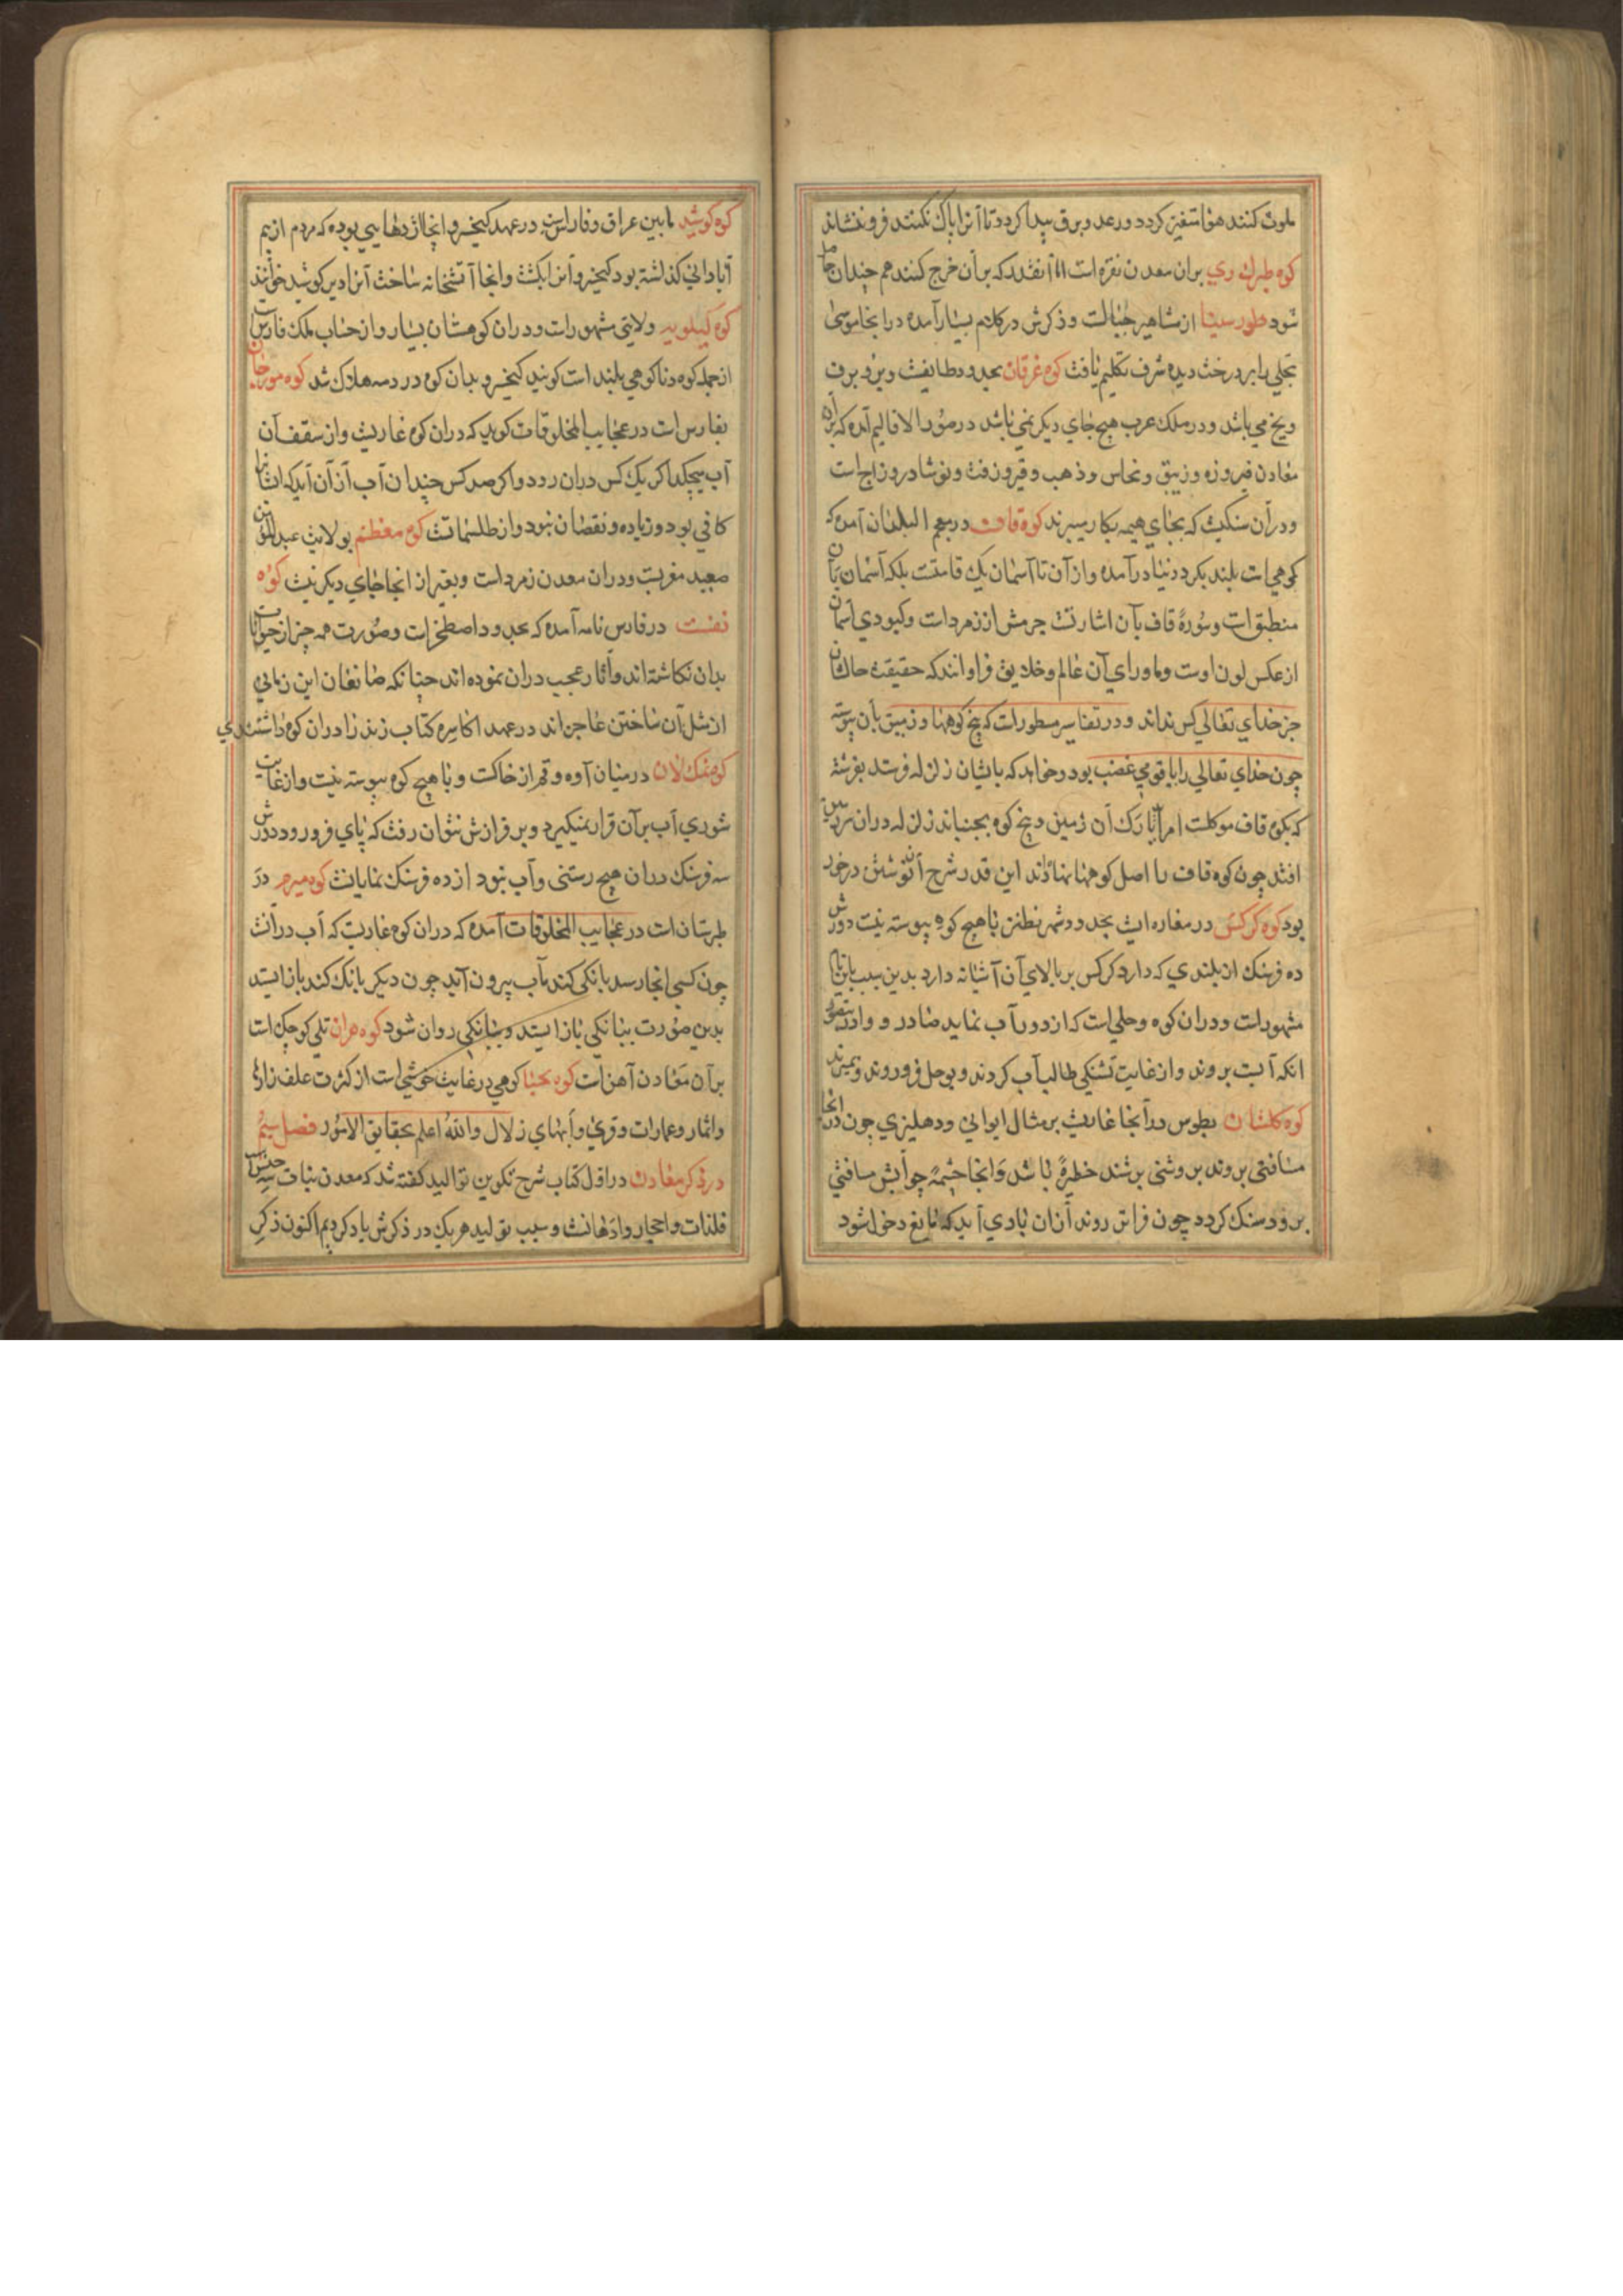 ملوث کنند هوا متغیر کردد ورعد وبرق پیدا کردد تا آنرا پاک نکنند فرو ننشاند
کوه طبرک ری بران معدن نقره است اما آنقدر که برآن خرج کنند هم چندان حاصل
شود طور سینا از مشاهیر جبالست وذکرش درکلام بسیار آمده درانجا موسی
تجلی را بر درخت دیده شرف تکلیم یافت کوه غزقان بحدود طایفست وبرو برف
ویخ می باشد ودر ملک عرب هیچ جای دیگر نمی باشد درصور الاقالیم آمده که بران
معادن فیروزه وزیبق ونحاس وذهب وقیر وزفت ونوشادر وزاج است
ودرآن سنکیست که بجای هیمه بکار میبرند کوه قاف درمعجم البلدان آمده که
کوهی است بلند بکرد دنیا درآمده وازآن تا آسمان یک قامتست بلکه آسمان بآن
منطبق است وسورهٔ قاف بآن اشارتست جرمش از زمرد است وکبودی آسمان
ازعکس لون اوست وماورای آن عالم وخلایق فراوانند که حقیقت حالشان
جز خدای تعالی کس نداند ودر تفاسیر مسطورات که بیخ کوهها وزمین بآن پیوسته
چون خدای تعالی را با قومی غضب بود وخواهد که بایشان زلزله فرستد بفرشته
که بکوه قاف موکلست امر آید تا رک آن زمین وبیخ کوه بجنباند زلزله دران سرزمین
افتد چون کوه قاف را اصل کوهها نهاده‌اند این قدر شرح آن نوشتن درخور
بود کوه کرکس در مغازه ایست بحدود شهر نطنز با هیچ کوه پیوسته نیست دورش
ده فرسنک از بلندی که دارد کرکس بر بالای آن آشیانه دارد بدین سبب باین نام
مشهورات ودران کوه وحلی است که ازدور آب نماید صادر و وارد بتصور
انکه آبست بروند واز غایت تشنکی طالب آب کردند وبوحل فرو روند وبمیرند
کوه کلستان بطوس درآنجا غاریست برمثال ایوانی ودهلیزی چون درانجا
مسافتی بروند بروشنی برشند حظیرهٔ باشد وانجا چشمهٔ چو آبش مسافتی
برود سنک کردد چون فراتر روند آزان بادی آید که مانع دخول شود
کوه کوشید مابین عراق وفارس است درعهد کیخسرو انجا اژدهایی بوده که مردم ازبیم
آبادانی کذاشته بود کیخسرو آنرا بکشت وانجا آتشخانه ساخت آنرا دیرکوشید خوانند
کوه کیلویه ولایتی مشهورات ودران کوهستان بسیار واز حساب ملک فارس است
ازجمله کوه دنا کوهی بلند است کویند کیخسرو بدان کوه در دمه هلاک شد کوه مورجان
بفارس است درعجایب المخلوقات کوید که دران کوه غاریست واز سقف آن
آب میچکد اکر یک کس دران رود واکر صد کس چندان آب ازآن آید که ایشانرا
کافی بود وزیاده ونقصان نبود واز طلسماتست کوه مغطم بولایت عبدالمؤمن
صعید مغربست ودران معدن زمرد است وبغیر از انجا جای دیکر نیست کوه
نفشت درفارس نامه آمده که بحدود اصطخرات وصورت همه چیز ازحیوانات
بدان نکاشته‌اند وآثار عجیب دران نموده‌اند چنانکه صانعان این زمانی
از مثل آن ساختن عاجزاند درعهد اکاسره کتاب زند را دران کوه داشتندی
کوه نمک لان درمیان آوه وقم از خاکست و با هیچ کوه پیوسته نیست واز غایت
شوری آب برآن قرار نمیکیرد وبر فرازش نتوان رفت که پای فرو رود دورش
سه فرسنک دران هیچ رستنی وآب نبود از ده فرسنک نمایانست کوه میرم در
طبرستان است درعجایب المخلوقات آمده که دران کوه غاریست که آب درآنست
چون کسی انجا رسد بانکی کند آب بیرون آید چون دیکر بانک کند باز ایستد
بدین صورت ببانکی باز ایستد وببانکی روان شود کوه هران تلی کوچک است
برآن معادن آهن است کوه یحیا کوهی درغایت خوشی است از کثرت علف زارها
واثمار وعمارات وقری وآبهای زلال والله اعلم بحقایق الامور فصل سیم
درذکر معادن دراول کتاب شرح تکوین توالید کفته شد که معدن نبات سه جنس است
فلذات واحجار وادهانست وسبب تولید هریک در ذکرش یاد کردیم اکنون ذکر